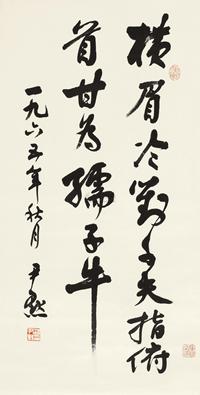 横眉冷對千夫指俯
首甘為孺子牛
一九六五年秋月 尹默